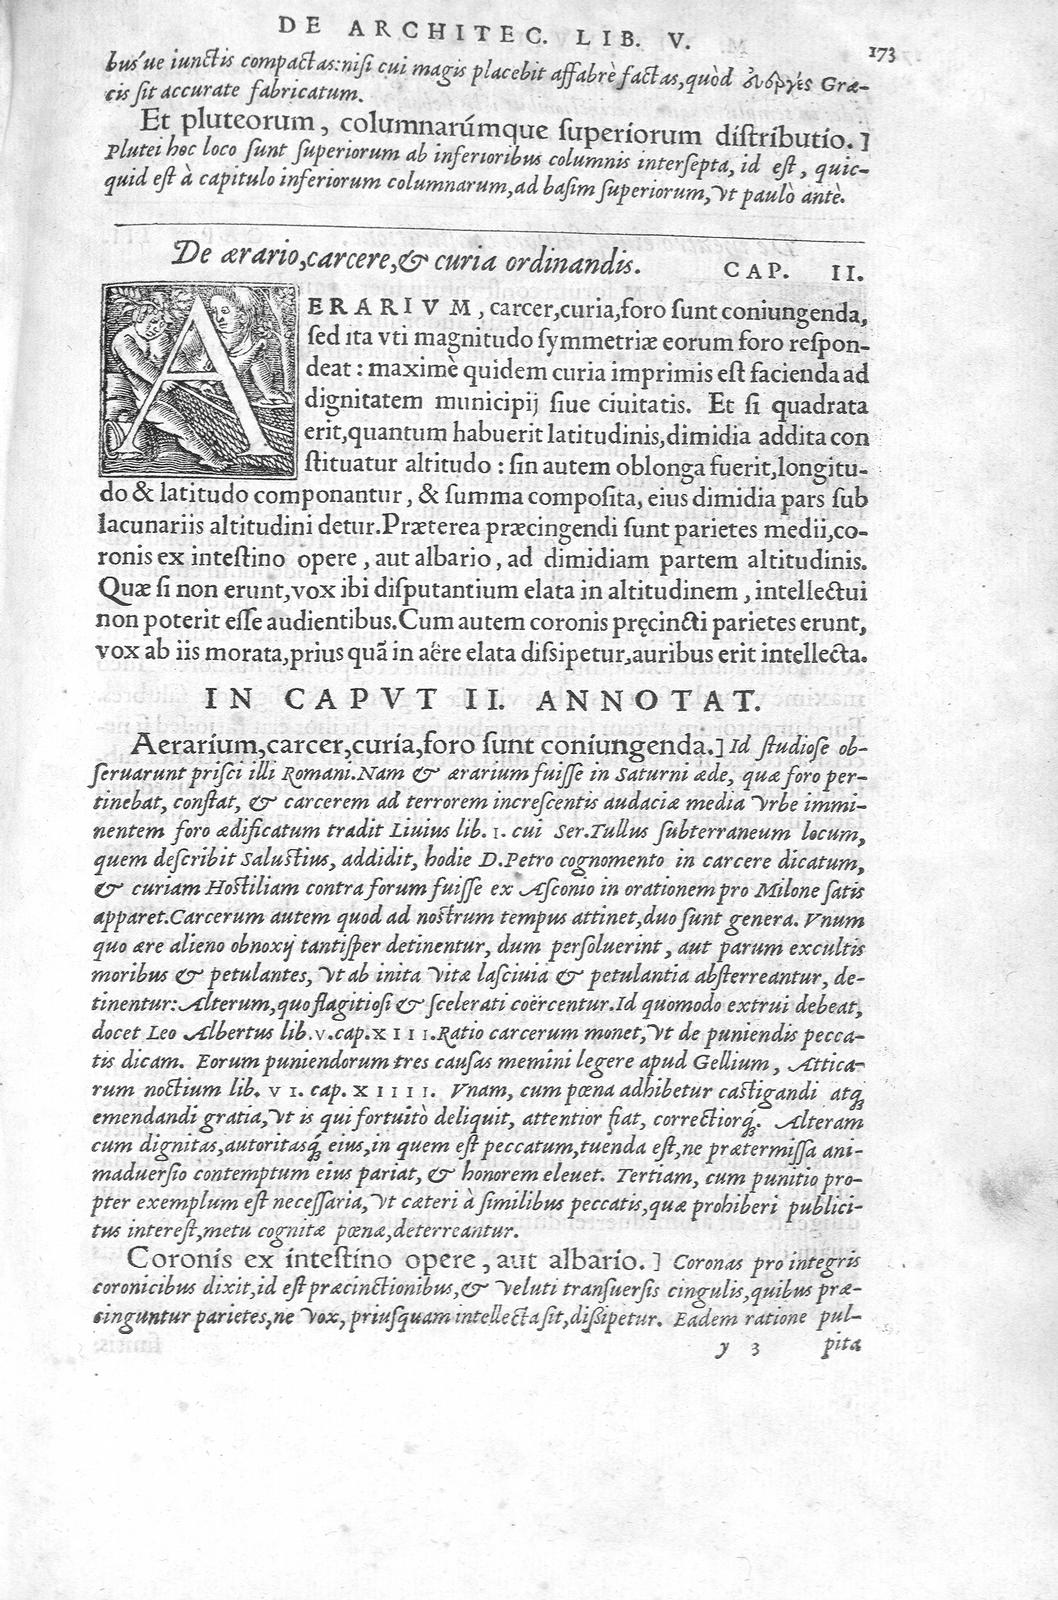 DE ARCHITEC. LIB. V. 173
bus'ue iunctis compactas:nisi cui magis placebit affabrè factas,quòd Græ-
cis sit accurate fabricatum.
Et pluteorum, columnarúmque superiorum distributio.]
Plutei hoc loco sunt superiorum ab inferioribus columnis intersepta, id est, quic-
quid est à capitulo inferiorum columnarum,ad basim superiorum,vt paulò antè.
De ærario,carcere,& curia ordinandis. CAP. II.
AERARIVM, carcer,curia,foro sunt coniungenda,
sed ita vti magnitudo symmetriæ eorum foro respon-
deat : maximè quidem curia imprimis est facienda ad
dignitatem municipij siue ciuitatis. Et si quadrata
erit,quantum habuerit latitudinis,dimidia addita con
stituatur altitudo : sin autem oblonga fuerit,longitu-
do & latitudo componantur, & summa composita, eius dimidia pars sub
lacunariis altitudini detur.Præterea præcingendi sunt parietes medii,co-
ronis ex intestino opere, aut albario, ad dimidiam partem altitudinis.
Quæ si non erunt,vox ibi disputantium elata in altitudinem, intellectui
non poterit esse audientibus.Cum autem coronis pręcincti parietes erunt,
vox ab iis morata,prius quã in aëre elata dissipetur,auribus erit intellecta.
IN CAPVT II. ANNOTAT.
Aerarium,carcer,curia,foro sunt coniungenda.] Id studiose ob-
seruarunt prisci illi Romani.Nam & ærarium fuisse in Saturni æde, quæ foro per-
tinebat, constat, & carcerem ad terrorem increscentis audaciæ media vrbe immi-
nentem foro ædificatum tradit Liuius lib. I. cui Ser.Tullus subterraneum locum,
quem describit Salustius, addidit, hodie D.Petro cognomento in carcere dicatum,
& curiam Hostiliam contra forum fuisse ex Asconio in orationem pro Milone satis
apparet.Carcerum autem quod ad nostrum tempus attinet,duo sunt genera. Vnum
quo ære alieno obnoxij tantisper detinentur, dum persoluerint, aut parum excultis
moribus & petulantes, vt ab inita vitæ lasciuia & petulantia absterreantur, de-
tinentur: Alterum,quo flagitiosi & scelerati coërcentur.Id quomodo extrui debeat,
docet Leo Albertus lib.V.cap.XIII.Ratio carcerum monet,vt de puniendis pecca-
tis dicam. Eorum puniendorum tres causas memini legere apud Gellium, Attica-
rum noctium lib. VI. cap. XIIII. Vnam, cum pœna adhibetur castigandi atq;
emendandi gratia,vt is qui fortuitò deliquit, attentior fiat, correctiorq́;. Alteram
cum dignitas,autoritasq́; eius,in quem est peccatum,tuenda est,ne prætermissa ani-
maduersio contemptum eius pariat, & honorem eleuet. Tertiam, cum punitio pro-
pter exemplum est necessaria, vt cæteri à similibus peccatis,quæ prohiberi publici-
tus interest,metu cognitæ pœnæ,deterreantur.
Coronis ex intestino opere, aut albario.] Coronas pro integris
coronicibus dixit,id est præcinctionibus,& veluti transuersis cingulis,quibus præ-
cinguntur parietes,ne vox,priusquam intellecta sit,dissipetur. Eadem ratione pul-
y 3 pita